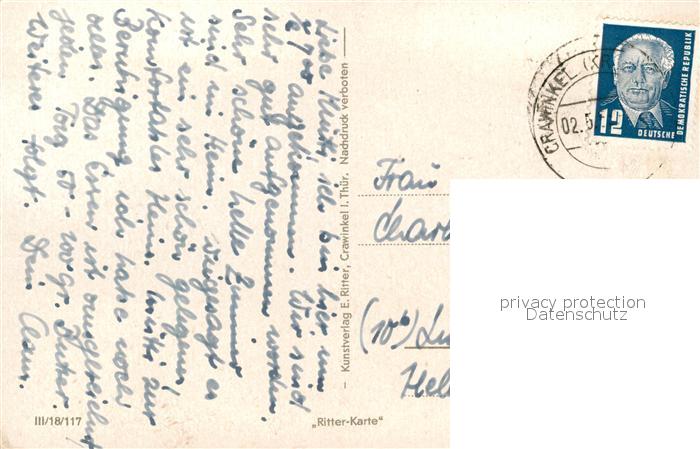 Liebe Mutti, ich bin hier um
7⁰⁰ angekommen. Wir sind
sehr gut aufgenommen worden.
Sehr schön helle Zimmer
sind im Heim. Wie gesagt es
ist ein sehr schön gelegenes
komfortables Heim. Mutti zur
Beruhigung ich habe noch
alles. Das Essen ist ausreichend
jeden Tag 50 - gr. Butter.
Weiteres folgt. Dein
— Kunstverlag E. Ritter, Crawinkel i. Thür. Nachdruck verboten —
III/18/117
„Ritter-Karte“
CRAWINKEL (KR
02.5
12
DEUTSCHE
DEMOKRATISCHE REPUBLIK
Frau
Charl
(10b) Lu
Hel
privacy protection
Datenschutz